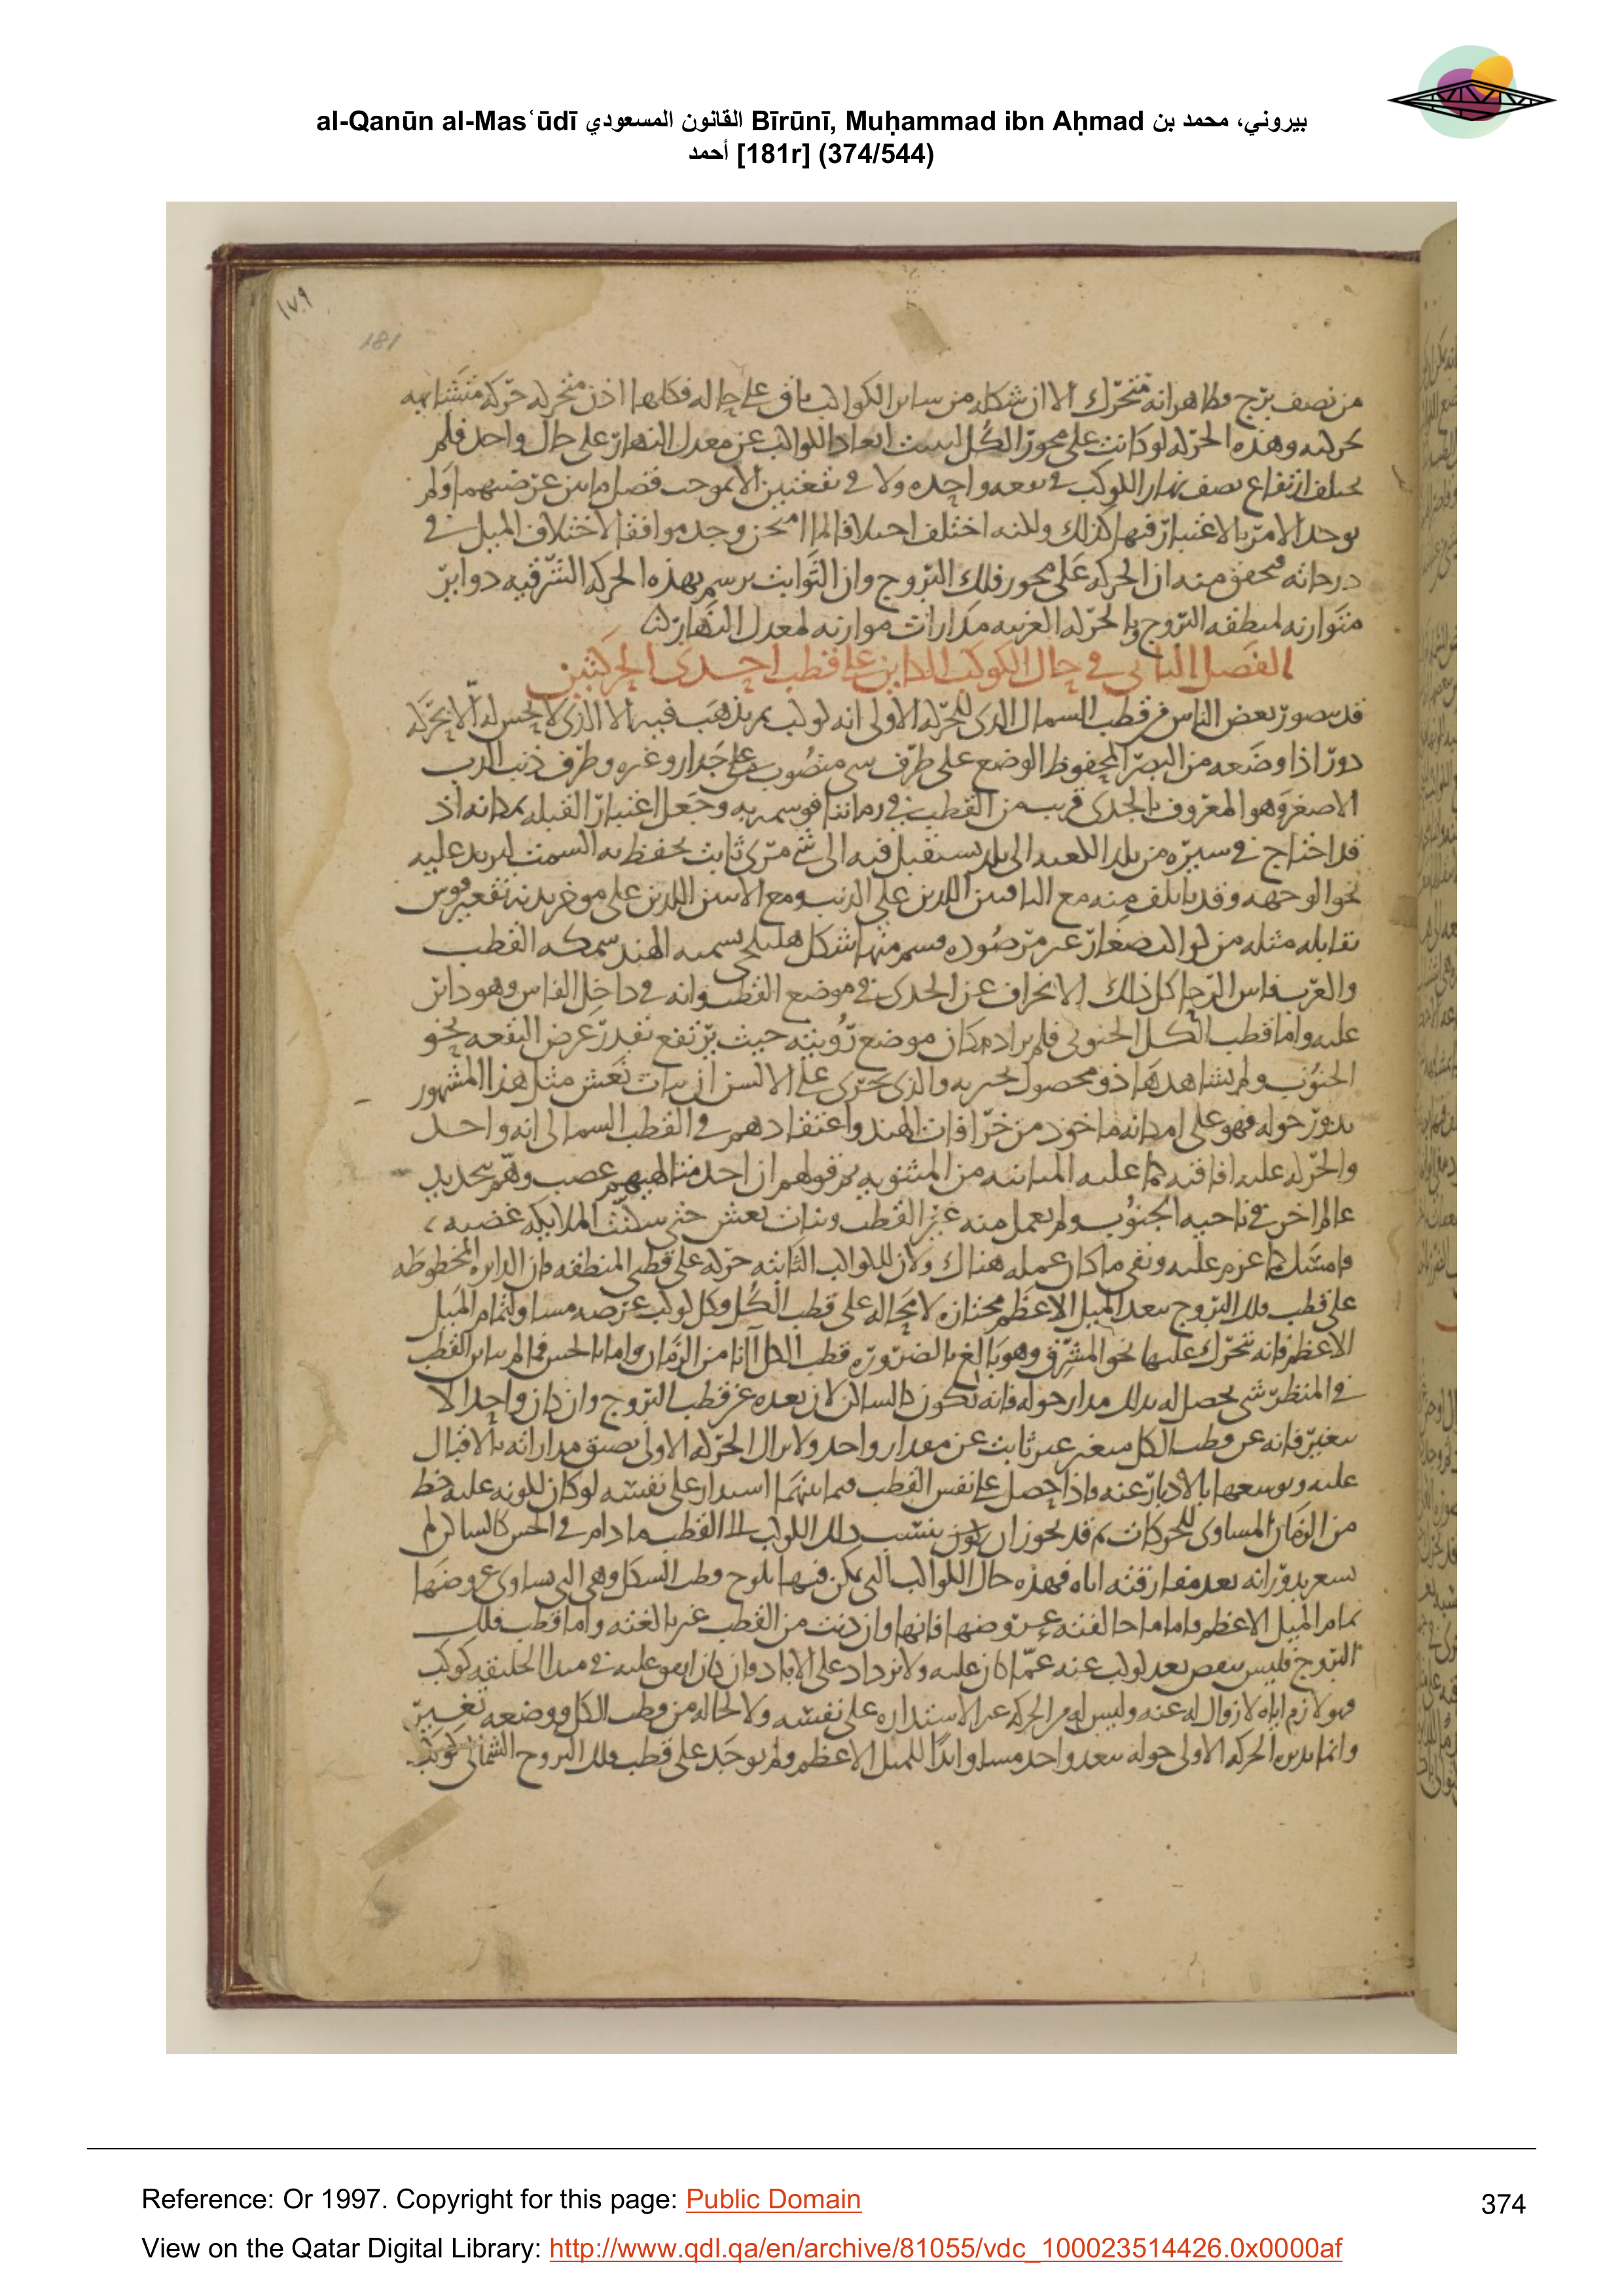 al-Qanūn al-Masʿūdī القانون المسعودي Bīrūnī, Muḥammad ibn Aḥmad بيروني، محمد بن
أحمد [181r] (374/544)
١٧٩
181
من نصف برج وظاهر انه متحرك الا ان شكله من سائر الكواكب باق على حاله فكلها اذن متحركه حركه متشابهه
كحركته وهذه الحركه لو كانت على محور الكل لثبت ابعاد الكواكب عن معدل النهار على حال واحد فلم
يختلف ارتفاع نصف نهار الكوكب في بقعه واحده ولا في بقعتين الا بموجب فضل ما بين عرضيهما ولم
يوجد الامر بالاعتبار فيها كذلك ولكنه اختلف اختلافا لما امتحن وجد موافقا لاختلاف الميل في
درجاته فتحقق منه ان الحركه على محور فلك البروج وان الثوابت ترسم بهذه الحركه الشرقيه دوائر
متوازيه لمنطقه البروج وبالحركه الغربيه مدارات موازيه لمعدل النهار
الفصل الثاني في حال الكوكب الكائن على قطب احدى الحركتين
قد يتصور بعض الناس في قطب الشمال الذي للحركه الاولى انه كوكب ثم يذهب فيه الى الذي لا يحس له الا بحركه
دور اذا وضعه من البصر المحفوظ الوضع على طرف شي منصوب على جدار وغيره وطرف ذنب الدب
الاصغر وهو المعروف بالجدي قريب من القطب في زماننا فوسم به وجعل اعتبار القبله بمكانه اذ
قد احتاج في سيره من بلد الكعبه الى بلد يستقبل فيه الى شي مرئ ثابت يحفظ به السمت ليرتد عليه
نحو الوجهه وقد يأتلف منه مع الباقيين اللذين على الذنب ومع الاثنين اللذين على موخر بدنه تقعير قوس
تقابله مثله من كواكب صغار غير مرصوده فيتم منها شكل هليلجي تسميه الهند سمكه القطب
والعرب فاس الرحا كل ذلك لانحراف عن الجدي في موضع القطب وانه في داخل الفاس وهو دائر
عليه واما قطب الكل الجنوبي فلم يراد مكان موضع رؤيته حيث يرتفع بقدر عرض البقعه نحو
الجنوب ولم يشاهدها ذو محصول نخبر به والذي يجري على الالسن ان بنات نعش مثل هذا المشهور
يدور حوله فهو على امكانه ماخوذ من خرافات الهند واعتقادهم في القطب الشمالي انه واحد
والحركه عليه افاقيه كما عليه المنانيه من المثنويه ثم قولهم ان احد متالهيهم غضب وهم بتجديد
عالم اخر في ناحيه الجنوب ولم يعمل منه غير القطب وبنات نعش حتى سكنت الملائكه غضبه
فامسك عما عزم عليه وبقي ما كان عمله هناك ولان للكواكب الثابته حركه على قطبي المنطقه فان الدائره المخطوطه
على قطب فلك البروج ببعد الميل الاعظم مجتازه لا محاله على قطب الكل وكل كوكب عرضه مساو لتمام الميل
الاعظم فانه يتحرك عليها نحو المشرق وهو بالغ بالضروره قطب الكل آنا من الزمان واما بالحس فما لم يباين القطب
في المنظر شي يحصل له بذلك مدار حوله فانه يكون كالساكن لان بعده عن قطب البروج وان كان واحدا لا
يتغير فانه عن قطب الكل متغير غير ثابت عن مقدار واحد ولا يزال الحركه الاولى يضيق مداراته بالاقبال
عليه وتوسعها بالادبار عنه فاذا حصل على نفس القطب فيما بينهما استدار على نفسه لو كان لكونه عليه حظ
من الزمان المساوى للحركات ثم قد يجوز ان يكون ينسب ذلك الكوكب الى القطب ما دام في الحس كالساكن لم
يشعر بدورانه بعد مفارقته اياه فهذه حال الكواكب التي يمكن فيها بلوغ قطب الكل وهي التي يساوي عروضها
تمام الميل الاعظم فاما ما خالفته عروضها فانها وان دنت من القطب غير بالغته واما قطب فلك
البروج فليس ينقص بعد كوكب عنه عما كان عليه ولا يزداد على الاباد وان كان اتفق عليه في مبدا الخليقه كوكب
فهو لازم اياه لا زوال له عنه وليس له من الحركه غير الاستداره على نفسه ولا لحاله من قطب الكل ووضعه تغيير
وانما يديره الحركه الاولى حوله ببعد واحد مساو ابدا للميل الاعظم ولم يوجد على قطب فلك البروج الشمالي كوكب
Reference: Or 1997. Copyright for this page: Public Domain
374
View on the Qatar Digital Library: http://www.qdl.qa/en/archive/81055/vdc_100023514426.0x0000af